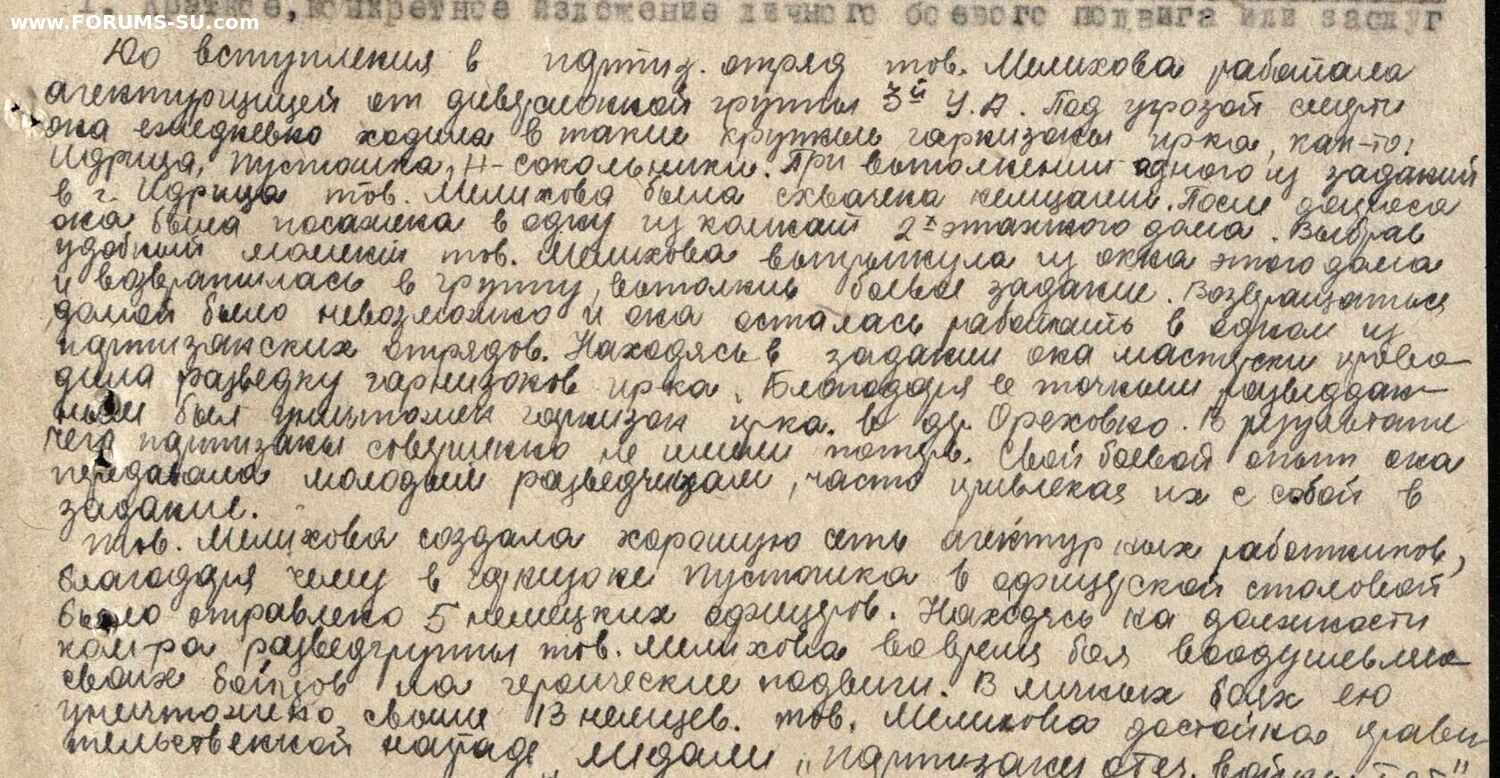 www.FORUMS-SU.com
1. Краткое, конкретное изложение личного боевого подвига или заслуг
До вступления в партиз. отряд тов. Мелихова работала
агентурщицей от диверсионной группы 3й У.А. Под угрозой смерти
она ежедневно ходила в такие крупные гарнизоны пр-ка, как-то:
Идрица, Пустошка, Н-сокольники. При выполнении одного из заданий
в г. Идрица тов. Мелихова была схвачена немцами. После допроса
она была посажена в одну из комнат 2х этажного дома. Выбрав
удобный момент тов. Мелихова выпрыгнула из окна этого дома
и возвратилась в группу, выполнив боевое задание. Возвращаться
домой было невозможно и она осталась работать в одном из
партизанских отрядов. Находясь в задании она мастерски прово-
дила разведку гарнизонов пр-ка. Благодаря ее точными разведдан-
ными был уничтожен гарнизон пр-ка в др. Ореховно. В результате
чего партизаны совершенно не имели потерь. Свой боевой опыт она
передавала молодым разведчикам, часто привлекая их с собой в
задание.
тов. Мелихова создала хорошую сеть агентурных работников,
благодаря чему в гарнизоне Пустошка в офицерской столовой
было отравлено 5 немецких офицеров. Находясь на должности
ком-ра разведгруппы тов. Мелихова во время боя воодушевляла
своих бойцов на героические подвиги. В личных боях ею
уничтожено свыше 13 немцев. тов. Мелихова достойна прави-
тельственной награде медали "партизану отеч. войны